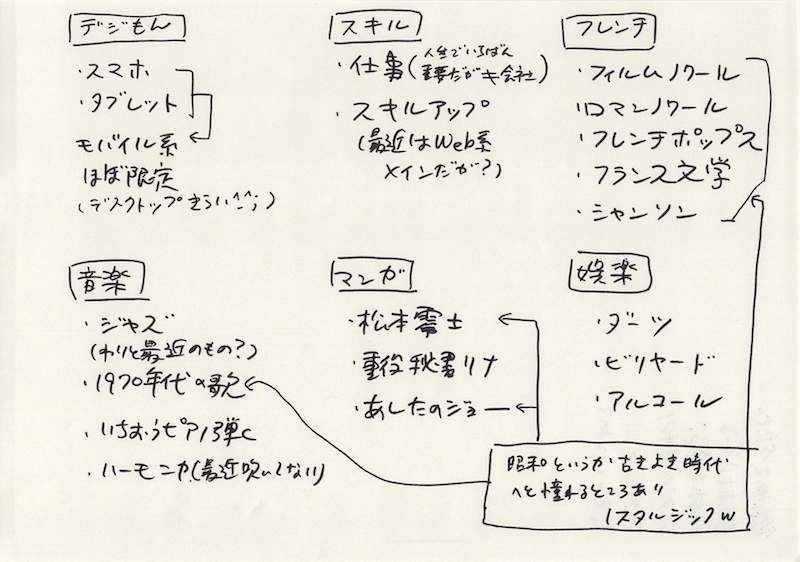 デジもん
・スマホ
・タブレット
モバイル系
ほぼ限定
(デスクトップきらい^^;)
スキル
・仕事(人生でいちばん
重要だがキ会社)
・スキルアップ
(最近はWeb系
メインだが?)
フレンチ
・フィルムノワール
・ロマンノワール
・フレンチポップス
・フランス文学
・シャンソン
音楽
・ジャズ
(わりと最近のもの?)
・1970年代の歌
・いちおうピアノ弾く
・ハーモニカ(最近吹いてない)
マンガ
・松本零士
・重役秘書リナ
・あしたのジョー
娯楽
・ダーツ
・ビリヤード
・アルコール
昭和というか古きよき時代
へと憧れるところあり
ノスタルジックw